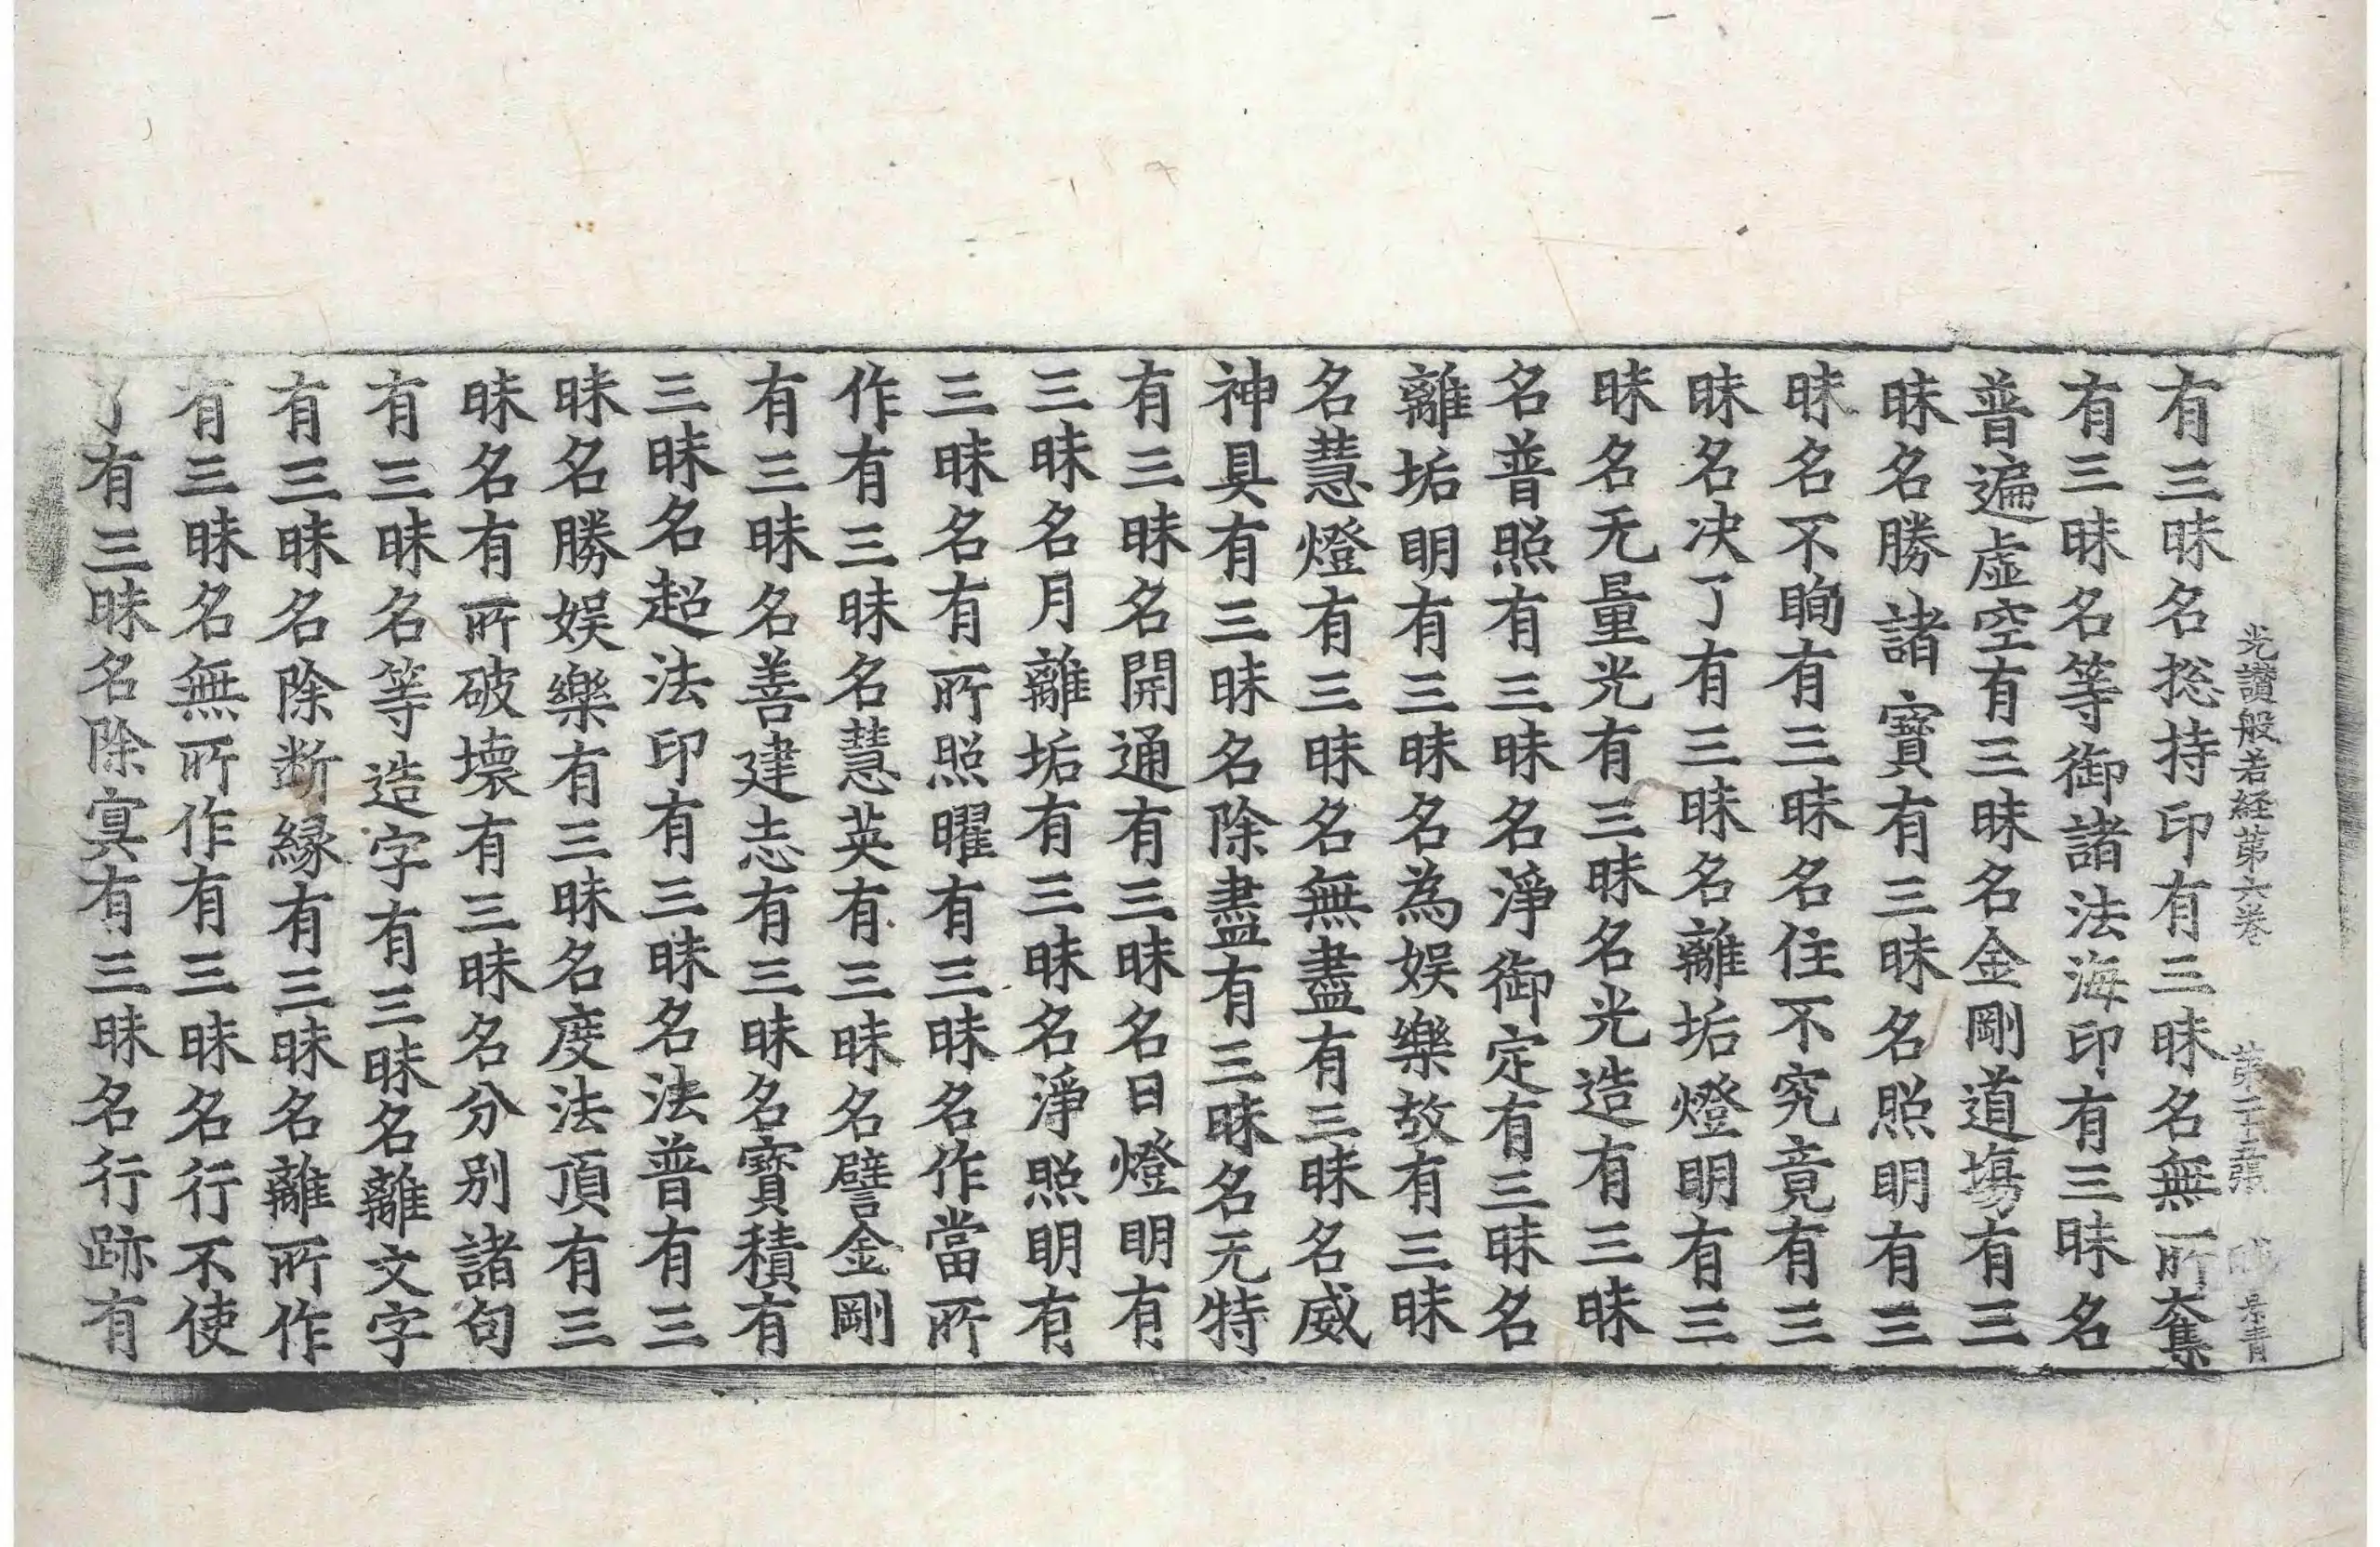 光讃般若経第六巻 第二十五張 景青
有三昧名捴持印有三昧名無所奪集
有三昧名等御諸法海印有三昧名
普遍虛空有三昧名金剛道場有三
昧名勝諸寶有三昧名照明有三
昧名不眴有三昧名住不究竟有三
昧名决了有三昧名離垢燈明有三
昧名无量光有三昧名光造有三昧
名普照有三昧名淨御定有三昧名
離垢明有三昧名為娛樂故有三昧
名慧燈有三昧名無盡有三昧名威
神具有三昧名除盡有三昧名无特
有三昧名開通有三昧名日燈明有
三昧名月離垢有三昧名淨照明有
三昧名有所照曜有三昧名作當所
作有三昧名慧英有三昧名譬金剛
有三昧名善建志有三昧名寶積有
三昧名超法印有三昧名法普有三
昧名勝娛樂有三昧名度法頂有三
昧名有所破壞有三昧名分别諸句
有三昧名等造字有三昧名離文字
有三昧名除断縁有三昧名離所作
有三昧名無所作有三昧名行不使
了有三昧名除㝠有三昧名行跡有